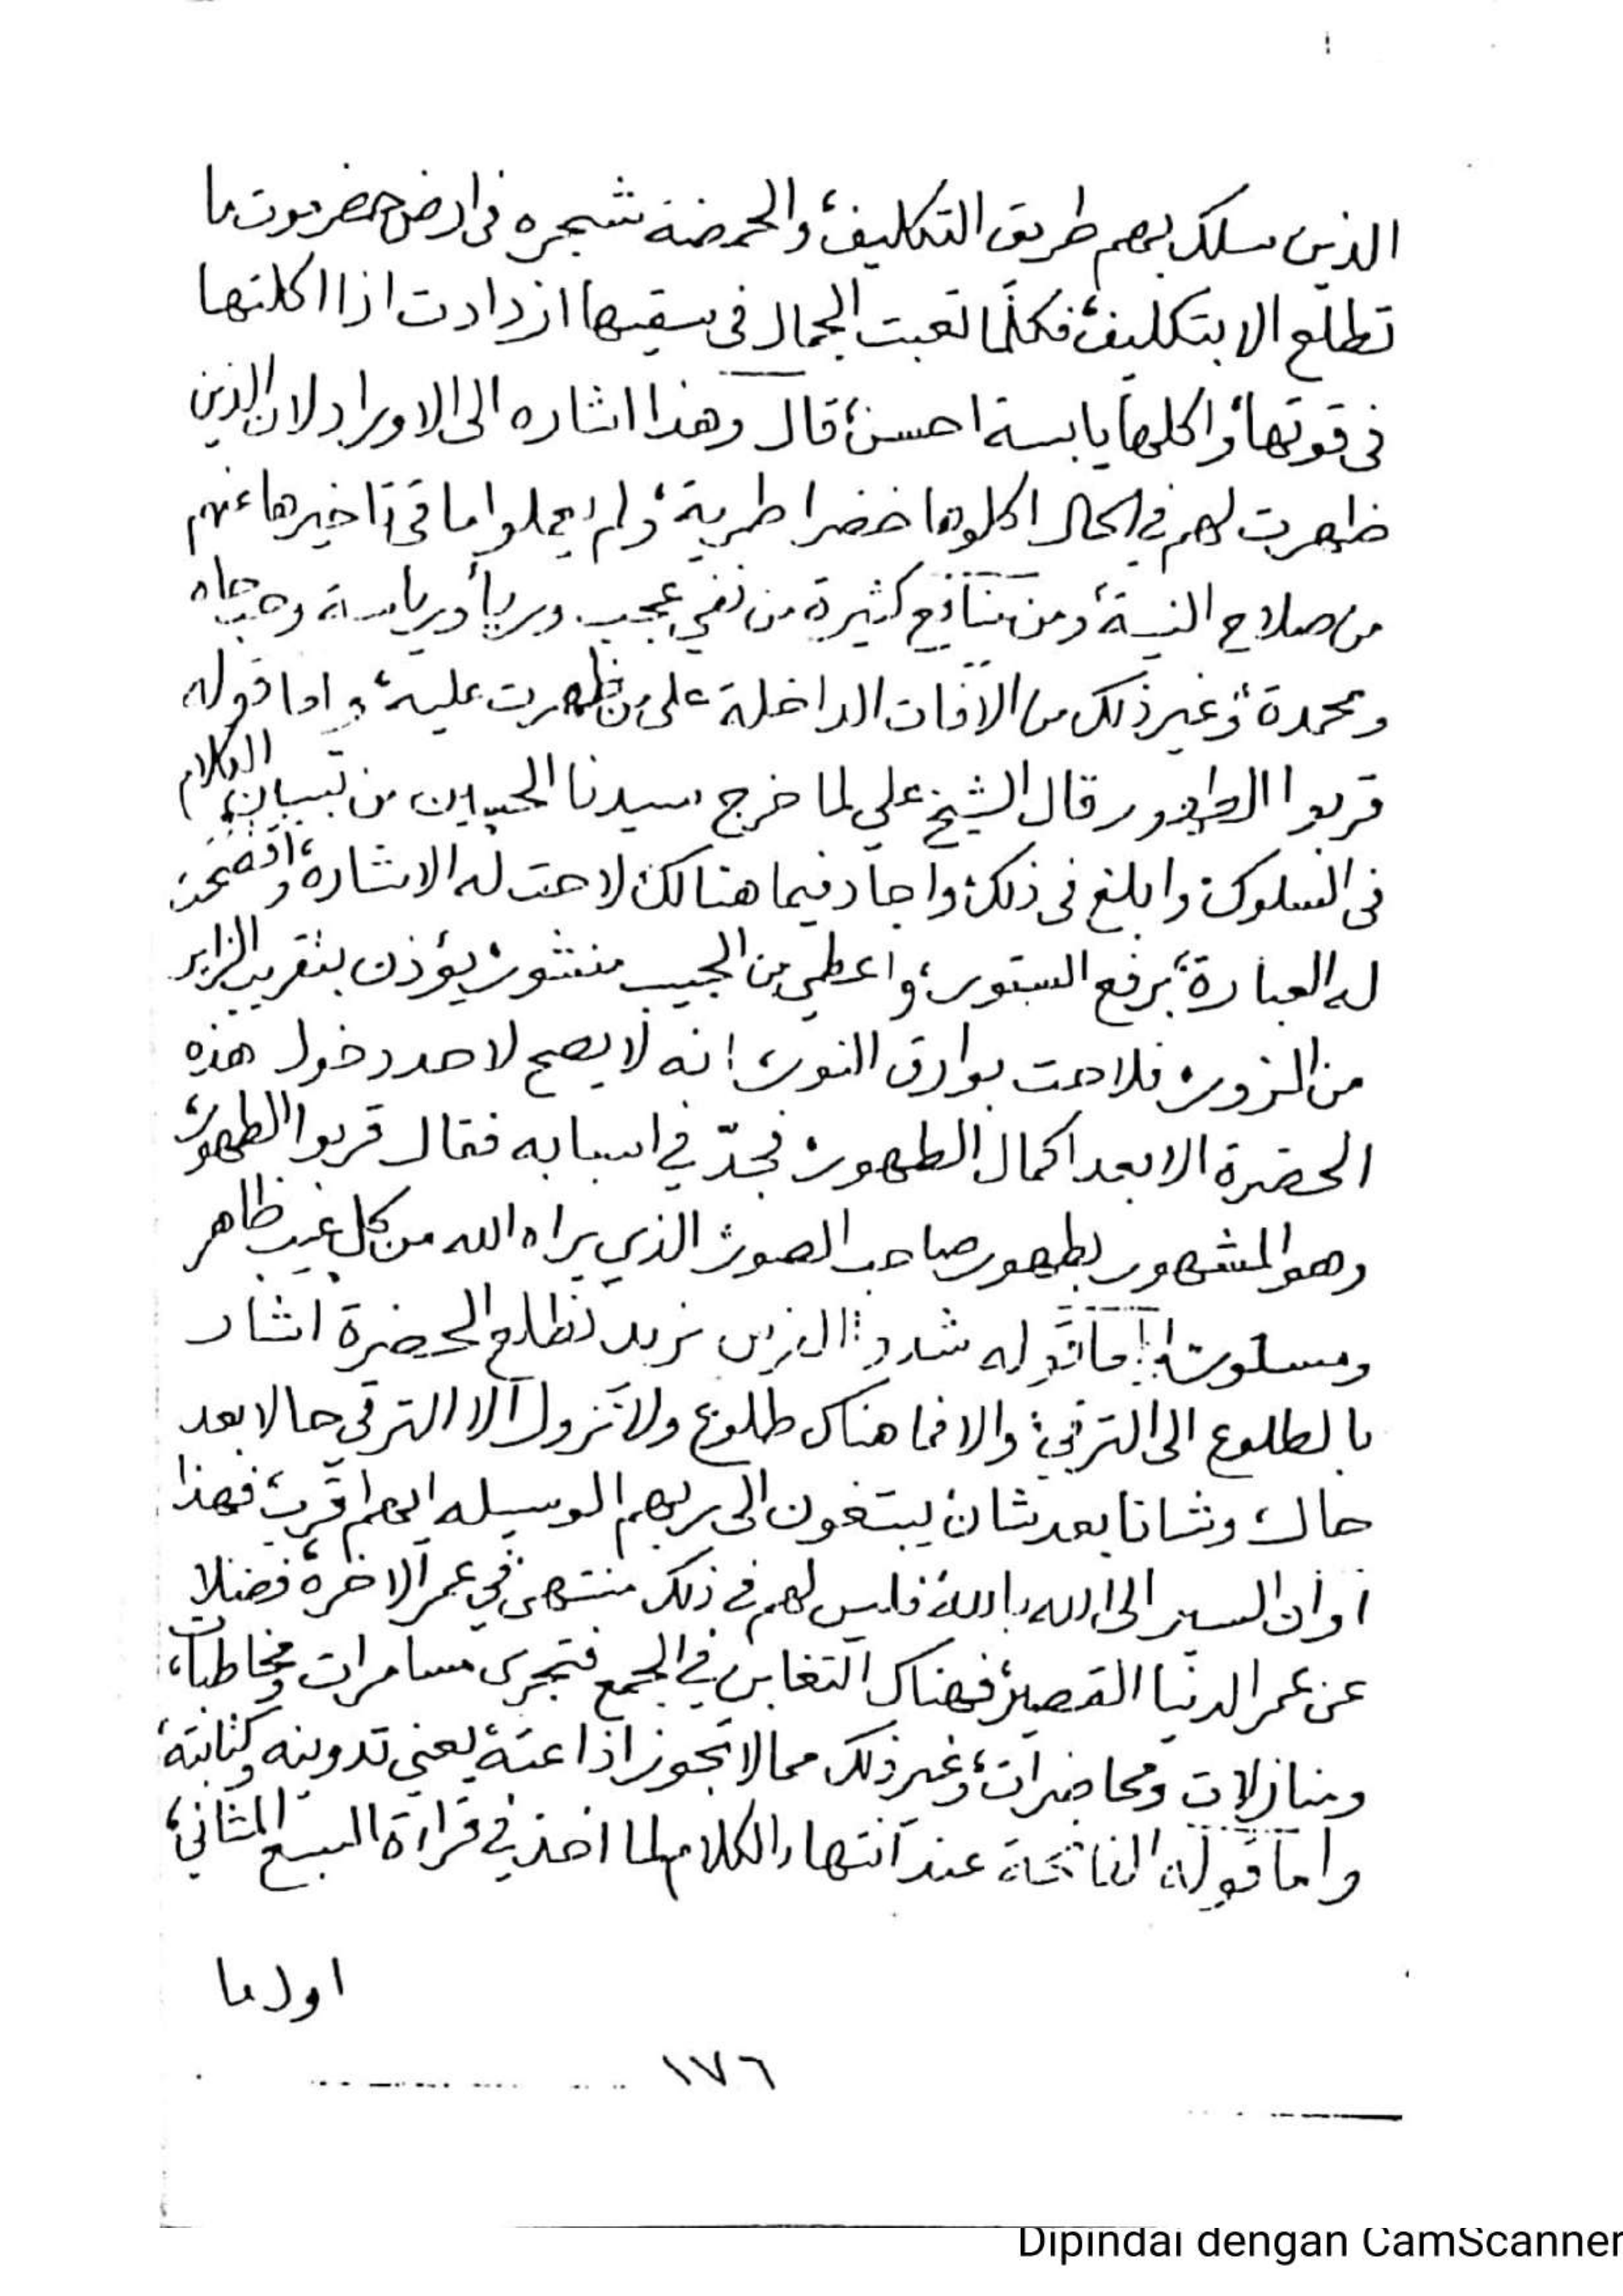 الذين سلك بهم طريق التكليف، والحمضة شجره فى ارض حضرموت ما
تطلع الا بتكليف، فكلما تعبت الجمال فى سقيها ازدادت اذا اكلتها
فى قوتها، واكلها يابسة احسن، قال وهذا اشاره الى الاوراد لان الذين
ظهرت لهم في الحال اكلوها خضرا طرية، ولم يعملوا ما فى تاخيرها عنهم
من صلاح النية، ومن نتائج كثيرة من نفي عجب وريا ورياسة وحب جاه
ومحمدة، وغير ذلك من الآفات الداخلة على من ظهرت عليه، واما قوله
قربوا وقال الشيخ علي لما خرج سيدنا الحسين من تبيان الكلام
فى السلوك، وابلغ فى ذلك، واجاد فيما هنالك، لاحت له الاشارة، وافصحت
له العبارة، برفع الستور، واعطي من الجيب منشور، يؤذن بتقريب الزاير
من المزور، فلاحت بوارق النور، انه لا يصح لاحد دخول هذه
الحضرة الا بعد اكمال الطهور، فجدّ في اسبابه فقال قربوا الطهور،
وهو المشهور بطهور صاحب الصور، الذي يراه الله من كل عيب ظاهر
ومستور، واما قوله شدد الذين نريد نطلع الحضرة اشار
بالطلوع الى الترقي، والا فما هناك طلوع ولا نزول الا الترقي حالا بعد
حال، وشانا بعد شان، يبتغون الى ربهم الوسيله ايهم اقرب، فهذا
اوان السير الى الله بالله، فليس لهم في ذلك منتهى في عمر الآخرة، فضلا
عن عمر الدنيا القصير، فهناك التغابن في الجمع فتجرى مسامرات ومخاطبات،
ومنازلات ومحاضرات، وغير ذلك مما لا تجوز اذاعته، يعني تدوينه وكتابته،
واما قوله الفاتحة عند انتهاء الكلام لما اخذ في قراءة السبع المثاني،
اول ما
١٧٦
Dipindai dengan CamScanner